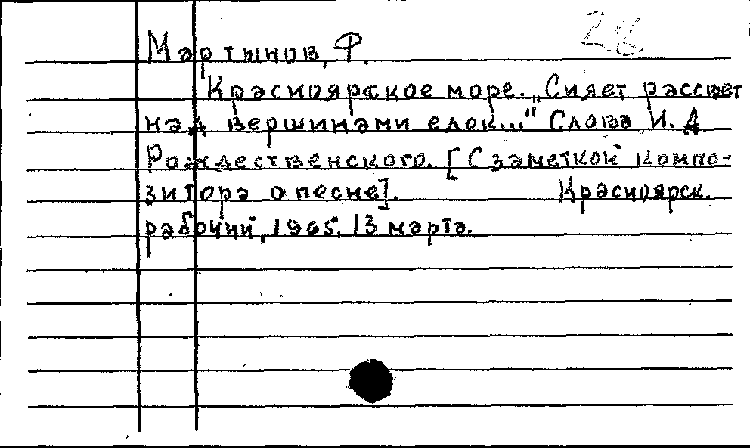 28
Мартынов, Ф.
Красноярское море. „Сияет рассвет
над вершинами елок..." Слова И. Д.
Рождественского. [С заметкой компо-
зитора о песне]. Красноярск.
рабочий, 1965, 13 марта.